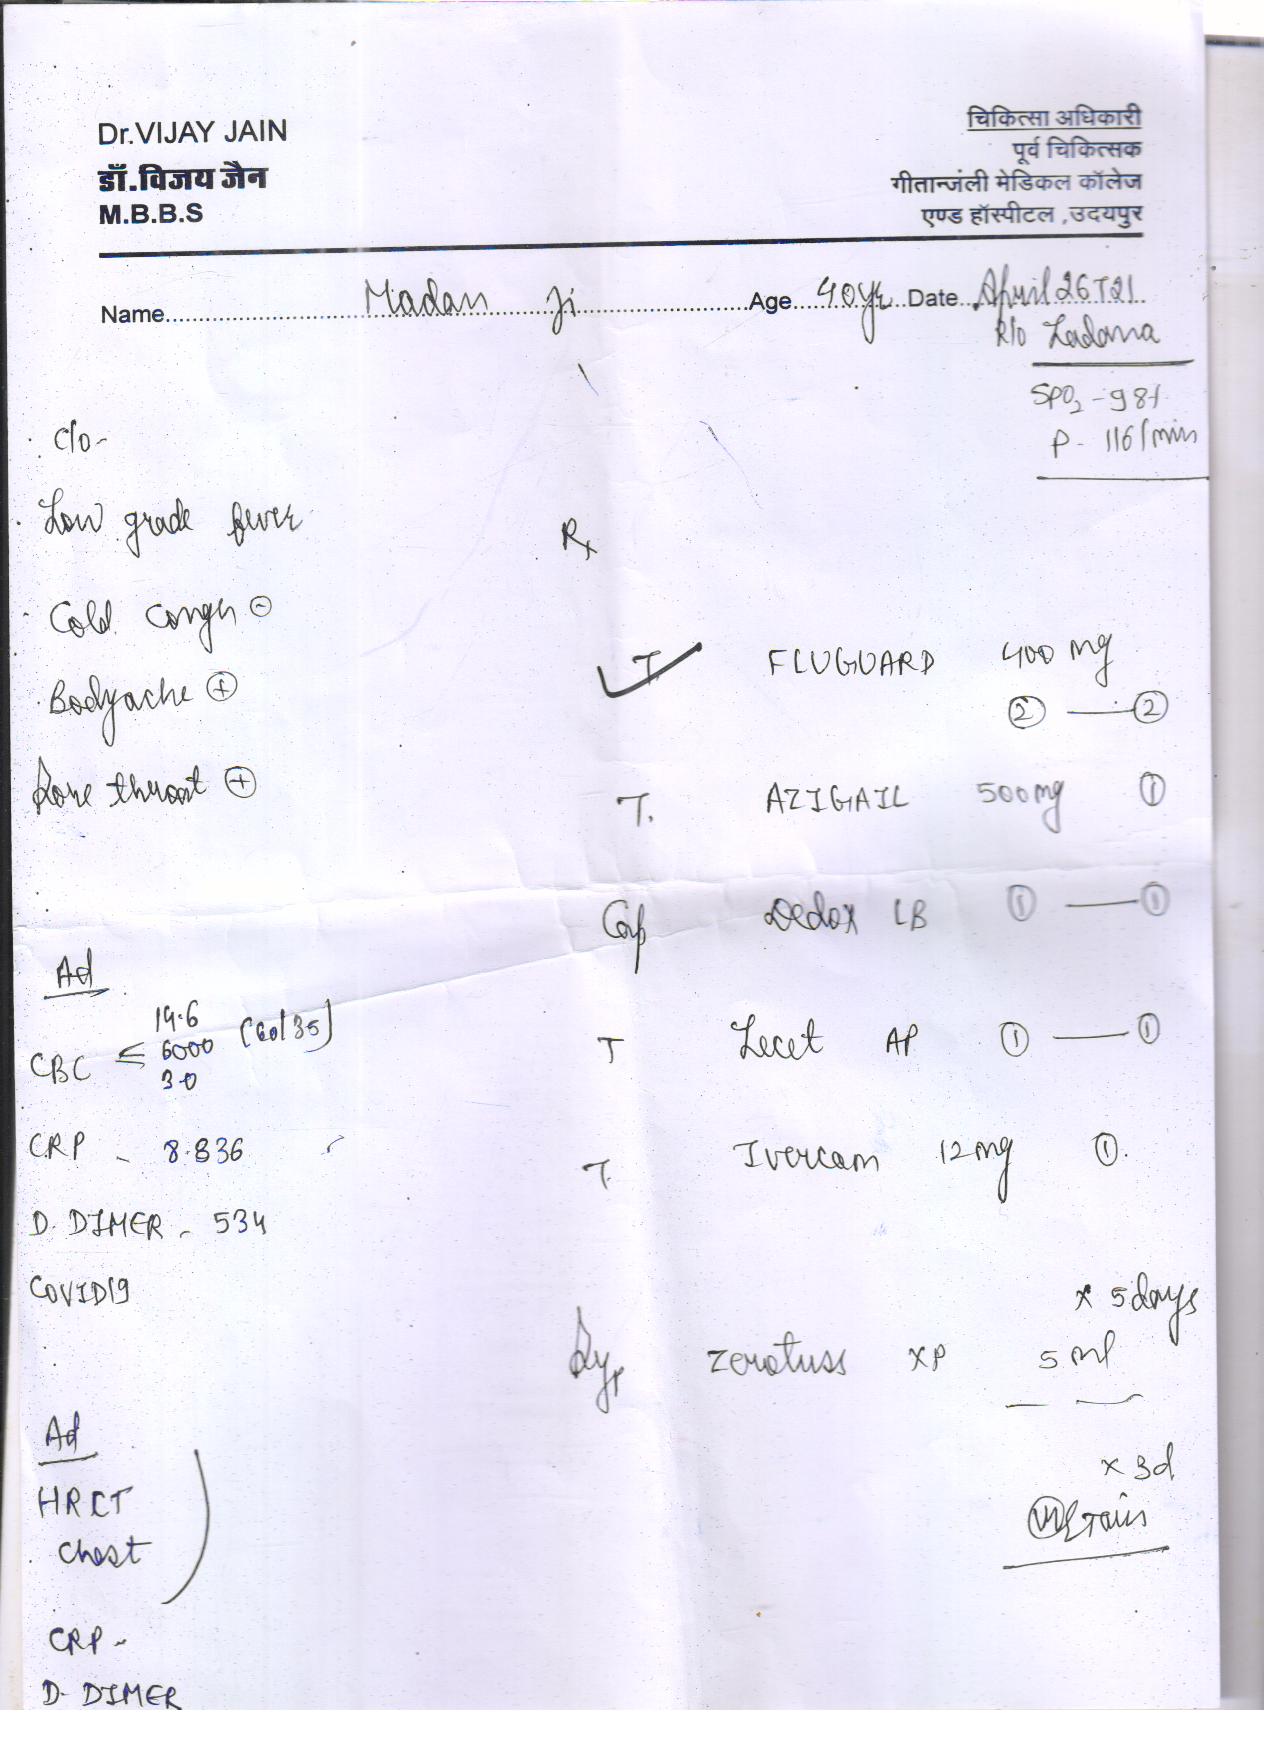 Dr.VIJAY JAIN
डॉ.विजय जैन
M.B.B.S
चिकित्सा अधिकारी
पूर्व चिकित्सक
गीतान्जंली मेडिकल कॉलेज
एण्ड हॉस्पीटल ,उदयपुर
Name Madan Ji Age 40yr Date April 26 21
R/o Zadana
SPO2 - 98%
P - 116/min
C/o -
Low grade fever
Cold cough ⊖
Bodyache ⊕
Sore throat ⊕
Ad
CBC 14.6
6000 (60/35)
30
CRP - 8.836
D. DIMER - 534
COVID19
Ad
HRCT
Chest
CRP -
D- DIMER
Rx
T. FLUGUARD 400 mg
② — ②
T. AZIGAIL 500mg ①
Cap Dedox LB ① — ①
T Lecet AP ① — ①
T. Ivercam 12mg ①
x 5 days
Syp Zerotuss XP 5 ml
x 3d